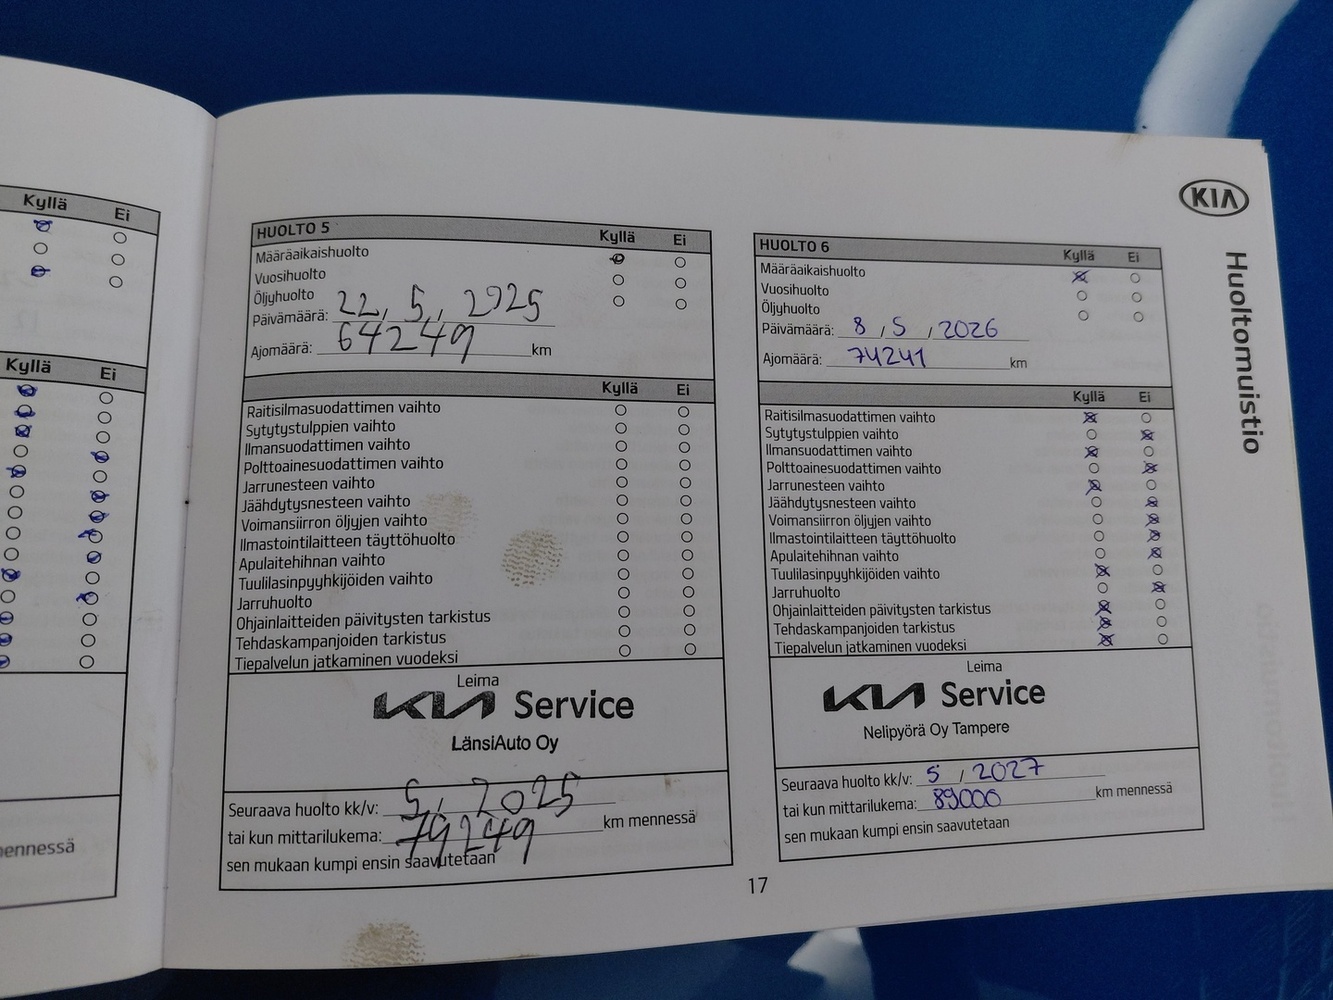 Kyllä Ei
Kyllä Ei
mennessä
HUOLTO 5 Kyllä Ei
Määräaikaishuolto
Vuosihuolto
Öljyhuolto
Päivämäärä: 22, 5, 2025
Ajomäärä: 64249 km
Kyllä Ei
Raitisilmasuodattimen vaihto
Sytytystulppien vaihto
Ilmansuodattimen vaihto
Polttoainesuodattimen vaihto
Jarrunesteen vaihto
Jäähdytysnesteen vaihto
Voimansiirron öljyjen vaihto
Ilmastointilaitteen täyttöhuolto
Apulaitehihnan vaihto
Tuulilasinpyyhkijöiden vaihto
Jarruhuolto
Ohjainlaitteiden päivitysten tarkistus
Tehdaskampanjoiden tarkistus
Tiepalvelun jatkaminen vuodeksi
Leima
KIA Service
LänsiAuto Oy
Seuraava huolto kk/v: 5, 2025
tai kun mittarilukema: 79249 km mennessä
sen mukaan kumpi ensin saavutetaan
HUOLTO 6 Kyllä Ei
Määräaikaishuolto
Vuosihuolto
Öljyhuolto
Päivämäärä: 8, 5, 2026
Ajomäärä: 74241 km
Kyllä Ei
Raitisilmasuodattimen vaihto
Sytytystulppien vaihto
Ilmansuodattimen vaihto
Polttoainesuodattimen vaihto
Jarrunesteen vaihto
Jäähdytysnesteen vaihto
Voimansiirron öljyjen vaihto
Ilmastointilaitteen täyttöhuolto
Apulaitehihnan vaihto
Tuulilasinpyyhkijöiden vaihto
Jarruhuolto
Ohjainlaitteiden päivitysten tarkistus
Tehdaskampanjoiden tarkistus
Tiepalvelun jatkaminen vuodeksi
Leima
KIA Service
Nelipyörä Oy Tampere
Seuraava huolto kk/v: 5 / 2027
tai kun mittarilukema: 89000 km mennessä
sen mukaan kumpi ensin saavutetaan
KIA
Huoltomuistio
17